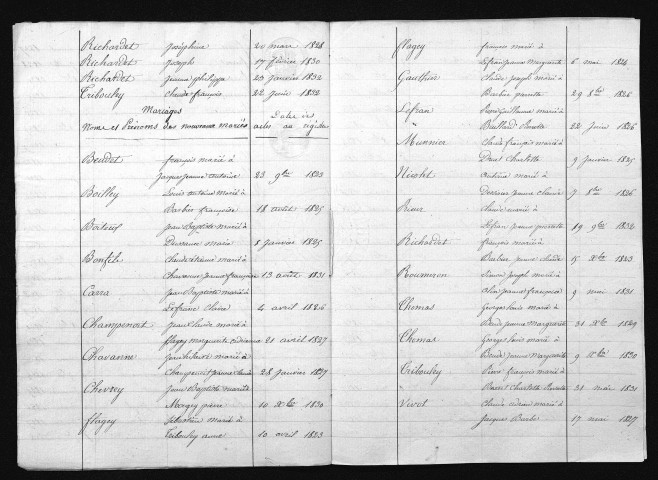 Richardet Joséphine 20 mars 1828
Richardet Joseph 17 février 1830
Richardet Jeanne philippe 23 janvier 1832
Tribouley Claude françois 22 juin 1832
Mariages
Noms et Prénoms des nouveaux mariés Dates des actes au registre
Beudet françois marié à
Jacques jeanne antoine 23 9bre 1823
Boilley Louis antoine marié à
Barbier françoise 18 août 1825
Boiteux jean Baptiste marié à
Marie 8 janvier 1825
Bonfils Claude étienne marié à
Chavanne jeanne françoise 13 août 1831
Carra jean Baptiste marié à
Lefranc Claire 4 avril 1826
Champenois jean Claude marié à
flagey marguerite 21 avril 1827
Chavanne marié à
Champenois jeanne 28 janvier 1827
Chevrey jean Baptiste marié à
10 Xbre 1830
flagey Sébastien marié à
Tribouley anne 10 avril 1823
flagey françois marié à
Lefranc jeanne marguerite 6 mai 1824
Gauthier Claude joseph marié à
Barbier pierrette 29 8bre 1826
Lefran Pierre Guillaume marié à
Pierrette 22 juin 1826
Meunnier Claude françois marié à
Charlotte 9 janvier 1825
Nicolet marié à
jeanne Claude 7 1826
Claude marié à
Lefran jeanne pierrette 19 9bre 1832
Richardet françois marié à
Barbier jeanne Claude 15 Xbre 1823
Simon joseph marié à
jeanne françoise 9 mai 1831
Thomas Georges Louis marié à
Beude jeanne Marguerite 31 Xbre 1829
Thomas Georges Louis marié à
Beude jeanne Marguerite 9 Xbre 1830
Tribouley Pierre françois marié à
Charlotte Pierrette 31 mai 1831
Vivot Claude marié à
Jacques Barbe 17 mai 1827